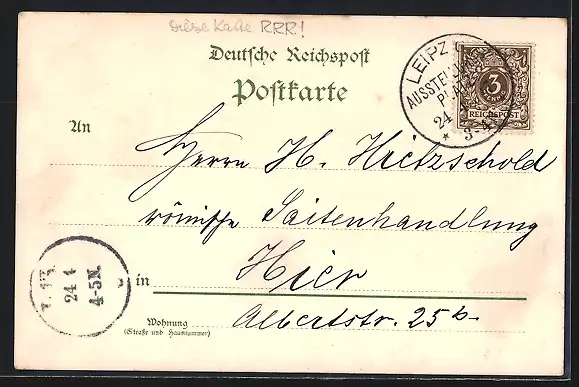 Diese Karte RRR!
Deutsche Reichspost
Postkarte
LEIPZIG
AUSSTELLUNGS
PLATZ
24
3-4
*
3
REICHSPOST
An
Herrn H. Hietzschold
römische Saitenhandlung
in Hier
Albertstr. 25b.
Wohnung
(Straße und Hausnummer)
24 4
4-5N.